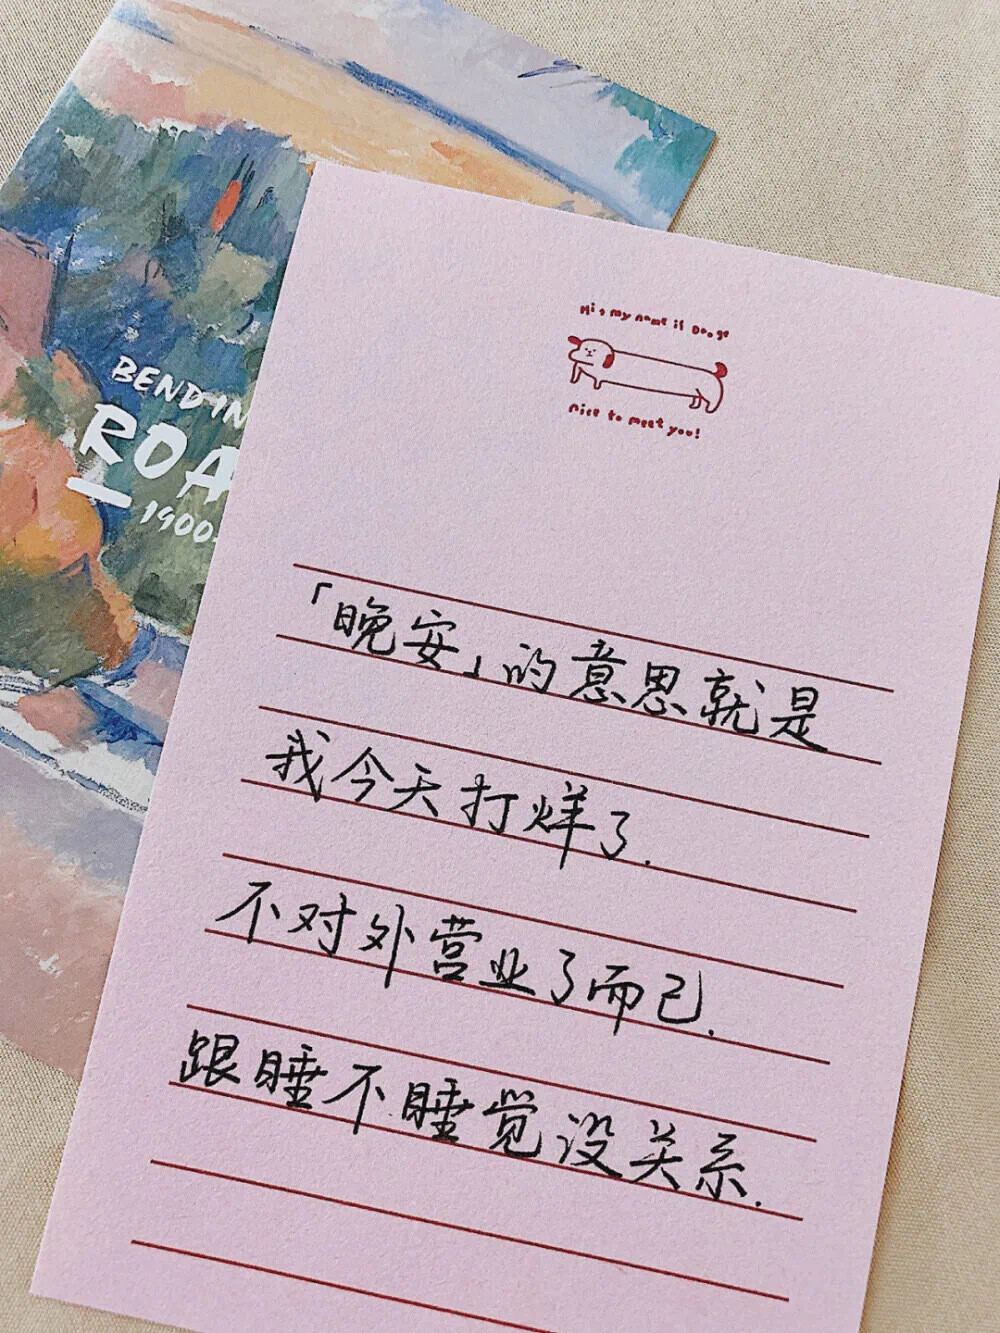 BENDIN
ROA
1900
Hi, my name is Dooge
nice to meet you!
「晚安」的意思就是
我今天打烊了.
不对外营业了而已.
跟睡不睡觉没关系.